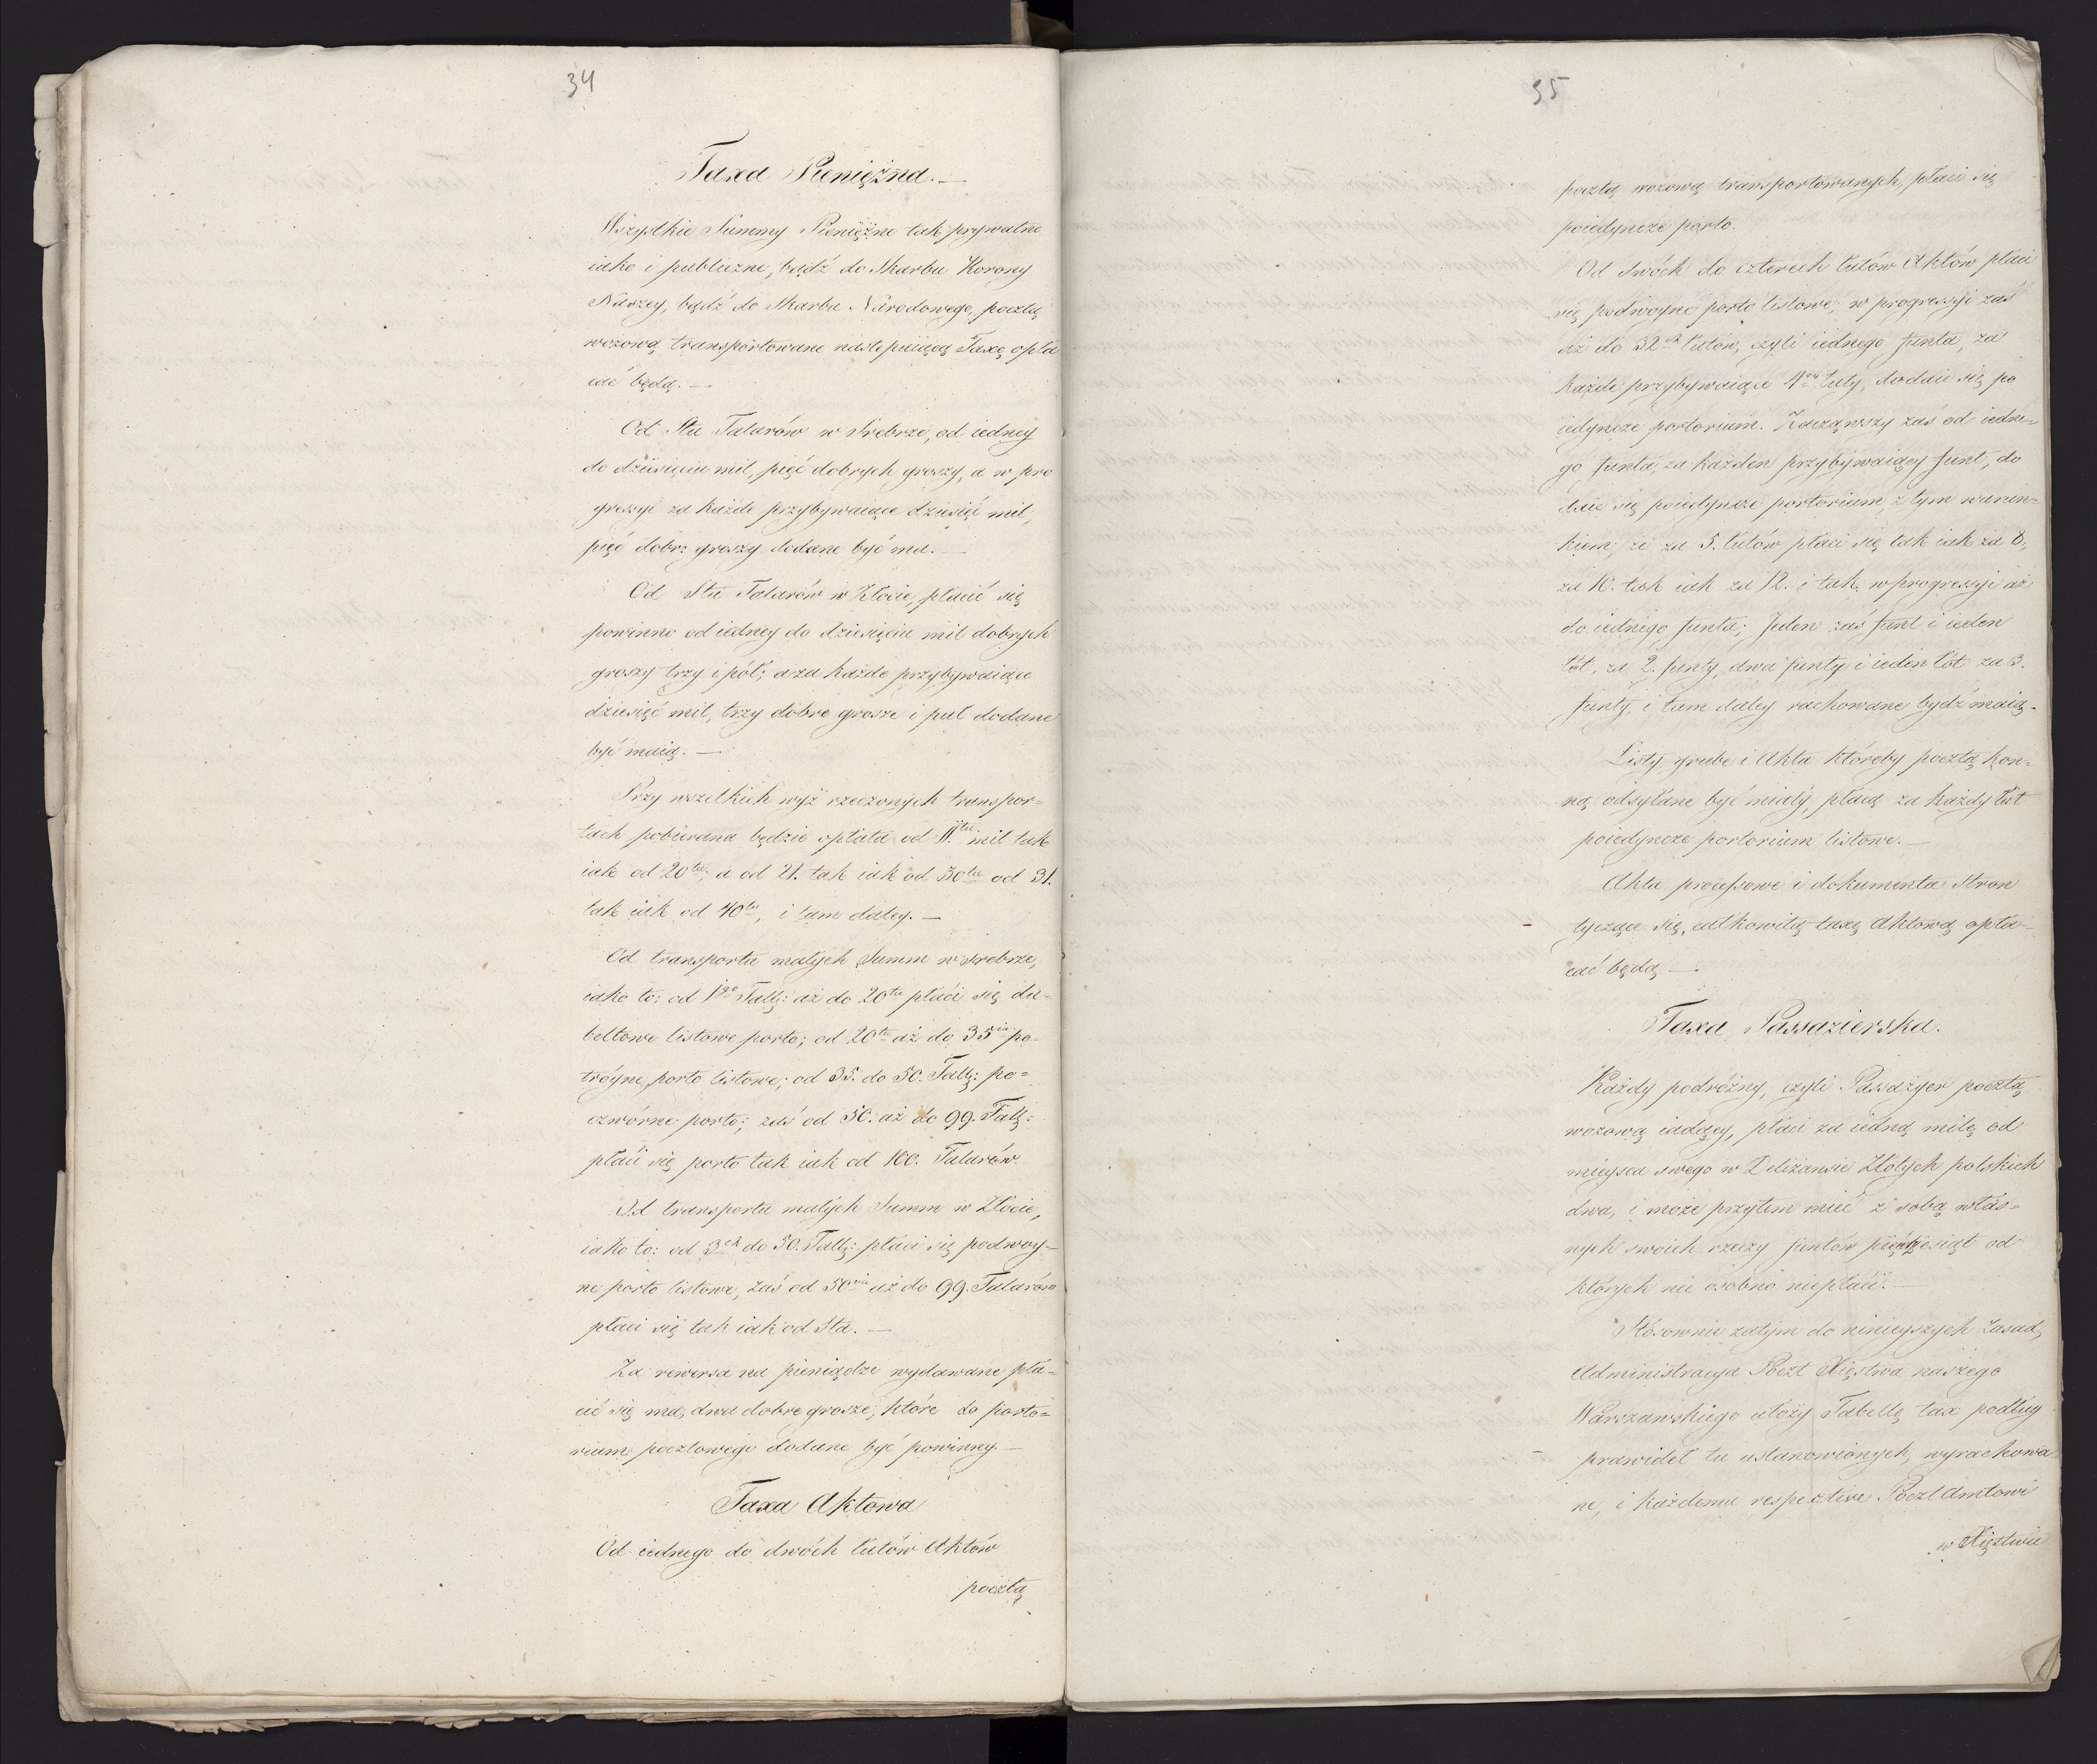 34
Taxa Pieniężna. —
Wszystkie Summy Pieniężne tak prywatne
iako i publiczne, bądź do Skarbu Korony
Naszey, bądź do Skarbu Narodowego, pocztą
wozową transportowane nastepuiącą Taxę opła
cać będą. —
Od Stu Talarów w Srebrze, od iedney
do dziesięciu mil, pięć dobrych groszy, a w pro
gressyi za każde przybywaiące dziesięć mil,
pięć dobr: groszy dodane być ma. —
Od Stu Talarów w Złocie, płacić się
powinno od iedney do dziesięciu mil dobrych
groszy trzy i pół; a za każde przybywaiące
dziesięć mil, trzy dobre grosze i puł dodane
być maią. —
Przy wszelkich wyż rzeczonych transpor=
tach pobierana będzie opłata od 11tu mil tak
iak od 20tu, a od 21. tak iak od 30tu od 31.
tak iak od 40tu, i tam daley. —
Od transportu małych Summ w srebrze,
iako to: od 1go Tall: aż do 20tu płaci się du=
beltowe listowe porto; od 20tu aż do 35ciu po=
tróyne porto listowe; od 35. do 50. Tall: po=
czwórne porto; zaś od 50. aż do 99. Tall:
płaci się porto tak iak od 100. Talarów.
Od transportu małych Summ w Złocie,
iako to: od 3ch do 50. Tall: płaci się podwoy=
ne porto listowe, zaś od 50ciu aż do 99. Talarów
płaci się tak iak od Sta. —
Za rewersa na pieniądze wydawane pła=
cić się ma, dwa dobre grosze, które do porto=
rium pocztowego dodane być powinny. —
Taxa Aktowa
Od iednego do dwóch łutów Aktów
pocztą
35
pocztą wozową transportowanych, płaci się
poiedyncze porto.
Od dwóch do czterech łutów Aktów płaci
się podwoyne porto listowe; w progressyi zaś
aż do 32ch łutów, czyli iednego funta, za
każde przybywaiące 4ry łuty, dodaie się po
iedyncze portorium. Zacząwszy zaś od iedne=
go funta, za każden przybywaiący funt, do
daie się poiedyncze portorium, z tym warun=
kiem, że za 5. łutów płaci się tak iak za 8,
za 10. tak iak za 12. i tak w progressyi aż
do iednego funta; Jeden zaś funt i ieden
łót, za 2. funty, dwa funty i ieden łót za 3.
funty, i tam daley rachowane bydź maią.
Listy grube i Akta któreby pocztą kon=
ną odsyłane być miały, płacą za każdy łut
poiedyncze portorium listowe. —
Akta processowe i dokumenta Stron
tyczące się, całkowitą taxę Aktową opła=
cać będą —
Taxa Passazierska.
Każdy podróżny, czyli Passażyer pocztą
wozową iadący, płaci za iedną milę od
mieysca swego w Deliżansie Złotych polskich
dwa, i może przytem mieć z sobą włas=
nych swoich rzeczy funtów pięćdziesiąt od
których nic osobno niepłaci. —
Stósownie zatym do ninieyszych Zasad,
Administracya Poczt Xięstwa naszego
Warszawskiego ułoży Tabellę tax podług
prawideł tu ustanowionych, wyrachowa
ne, i każdemu respective PocztAmtowi
w Xięstwie